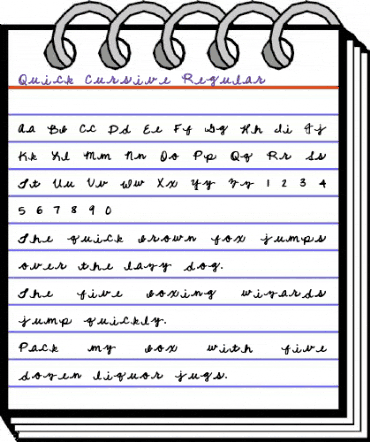 Quick Cursive Regular
Aa Bb Cc Dd Ee Ff Gg Hh Ii Jj
Kk Ll Mm Nn Oo Pp Qq Rr Ss
Tt Uu Vv Ww Xx Yy Zz 1 2 3 4
5 6 7 8 9 0
The quick brown fox jumps
over the lazy dog.
The five boxing wizards
jump quickly.
Pack my box with five
dozen liquor jugs.